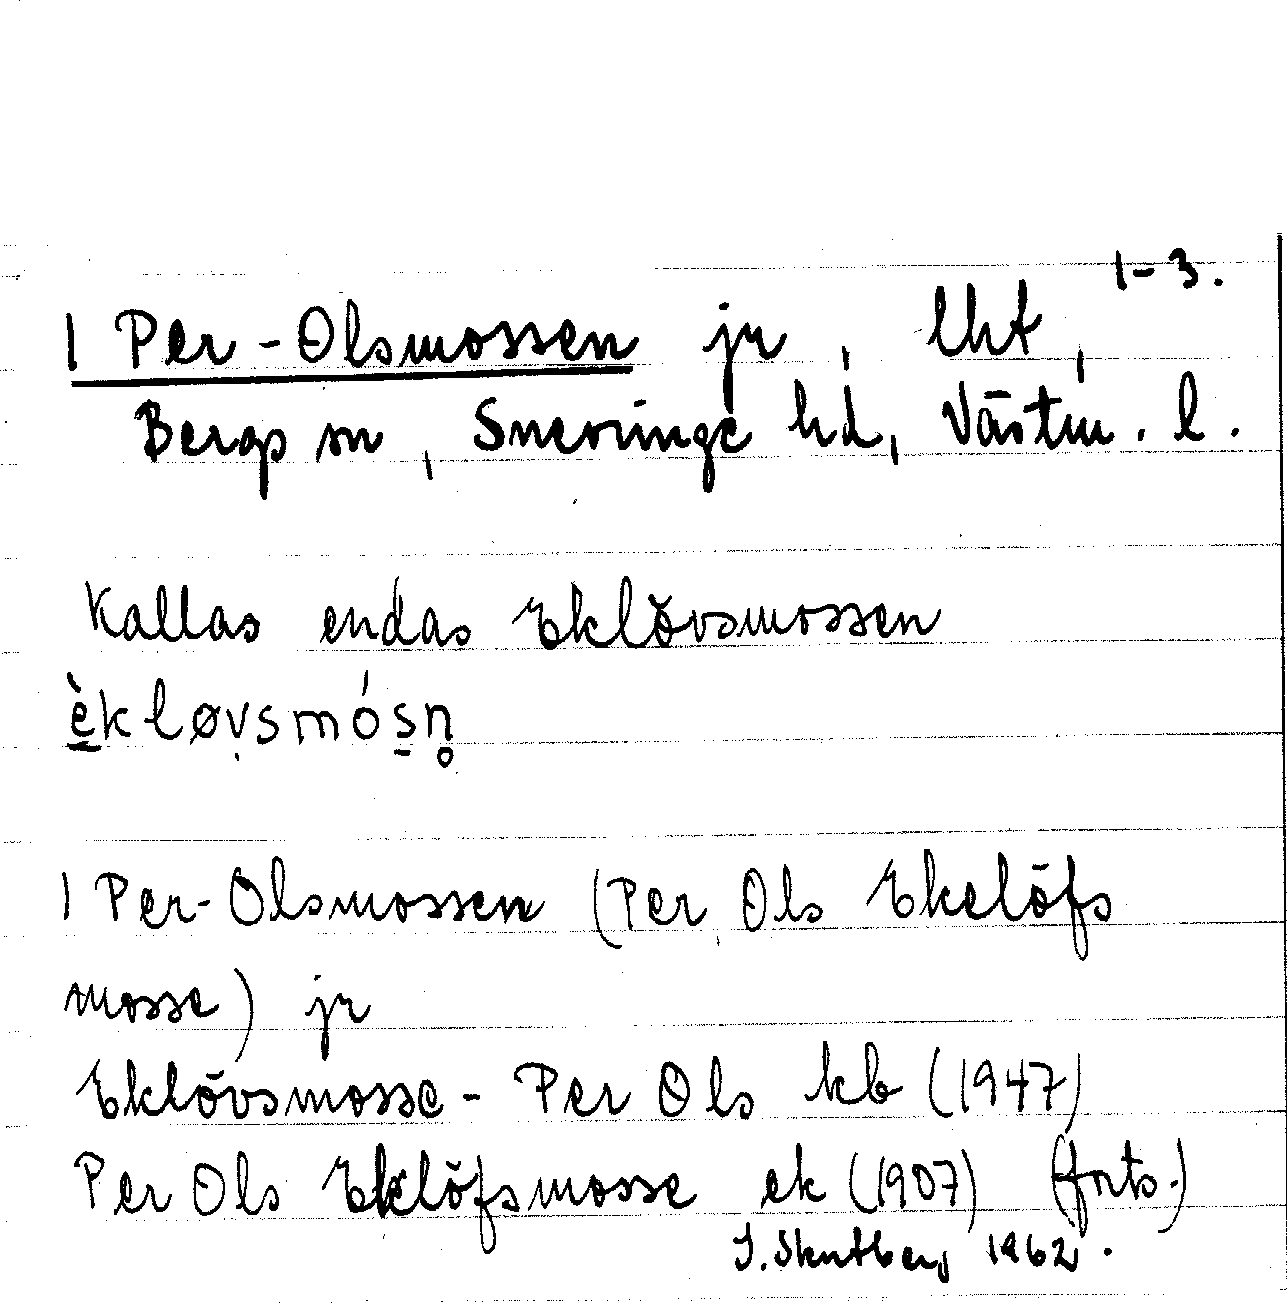 1-3.
1 Per-Olsmossen jr, lht,
Bergs sn, Snevringe hd, Västm. l.
Kallas endas Eklövsmossen
èkløvsmósn̥
1 Per-Olsmossen (Per Ols Ekelöfs
mosse) jr
Eklövsmosse - Per Ols kb (1947)
Per Ols Eklöfsmosse ek (1907) (forts.)
1962.